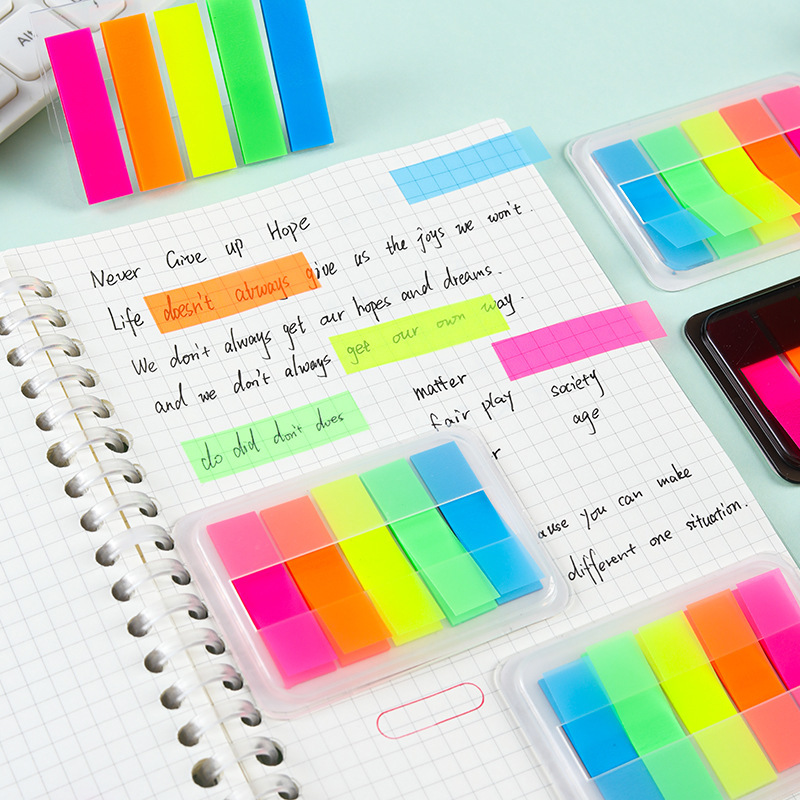 Alt
Never Give up Hope
Life doesn't always give us the joys we won't.
We don't always get our hopes and dreams.
and we don't always get our own way.
matter
fair play society
do did don't does
age
r
ause you can make
different one situation.